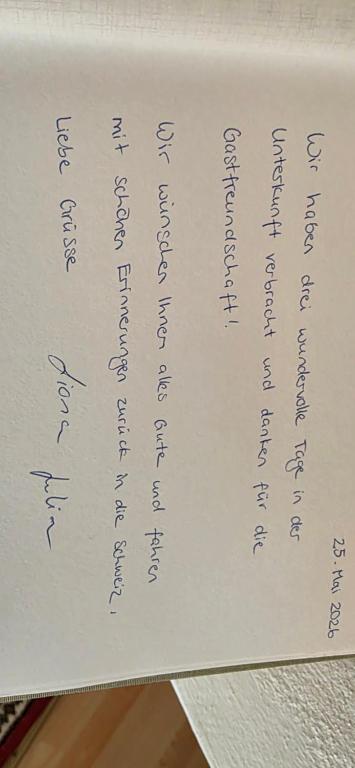 25. Mai 2026
Wir haben drei wundervolle Tage in der
Unterkunft verbracht und danken für die
Gastfreundschaft!
Wir wünschen Ihnen alles Gute und fahren
mit schönen Erinnerungen zurück in die Schweiz.
Liebe Grüsse Fiona Julia